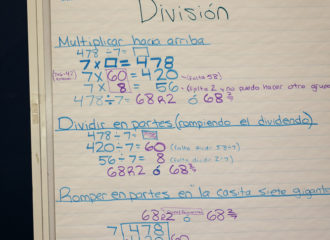 División
Multiplicar hacia arriba
478÷7=□
7×□=478
7×60=420 (falta 58)
7×8=56 (falta 2 y no puedo hacer otro grupo
478÷7=68R2 ó 68 2/7
Dividir en partes (rompiendo el dividendo)
478÷7=
420÷7=60 (falta dividir 58÷7)
56÷7=8 (falta dividir 2÷7)
68R2 ó 68 2/7
Romper en partes en "la casita siete gigante
68R2 ó 68 2/7
7 478